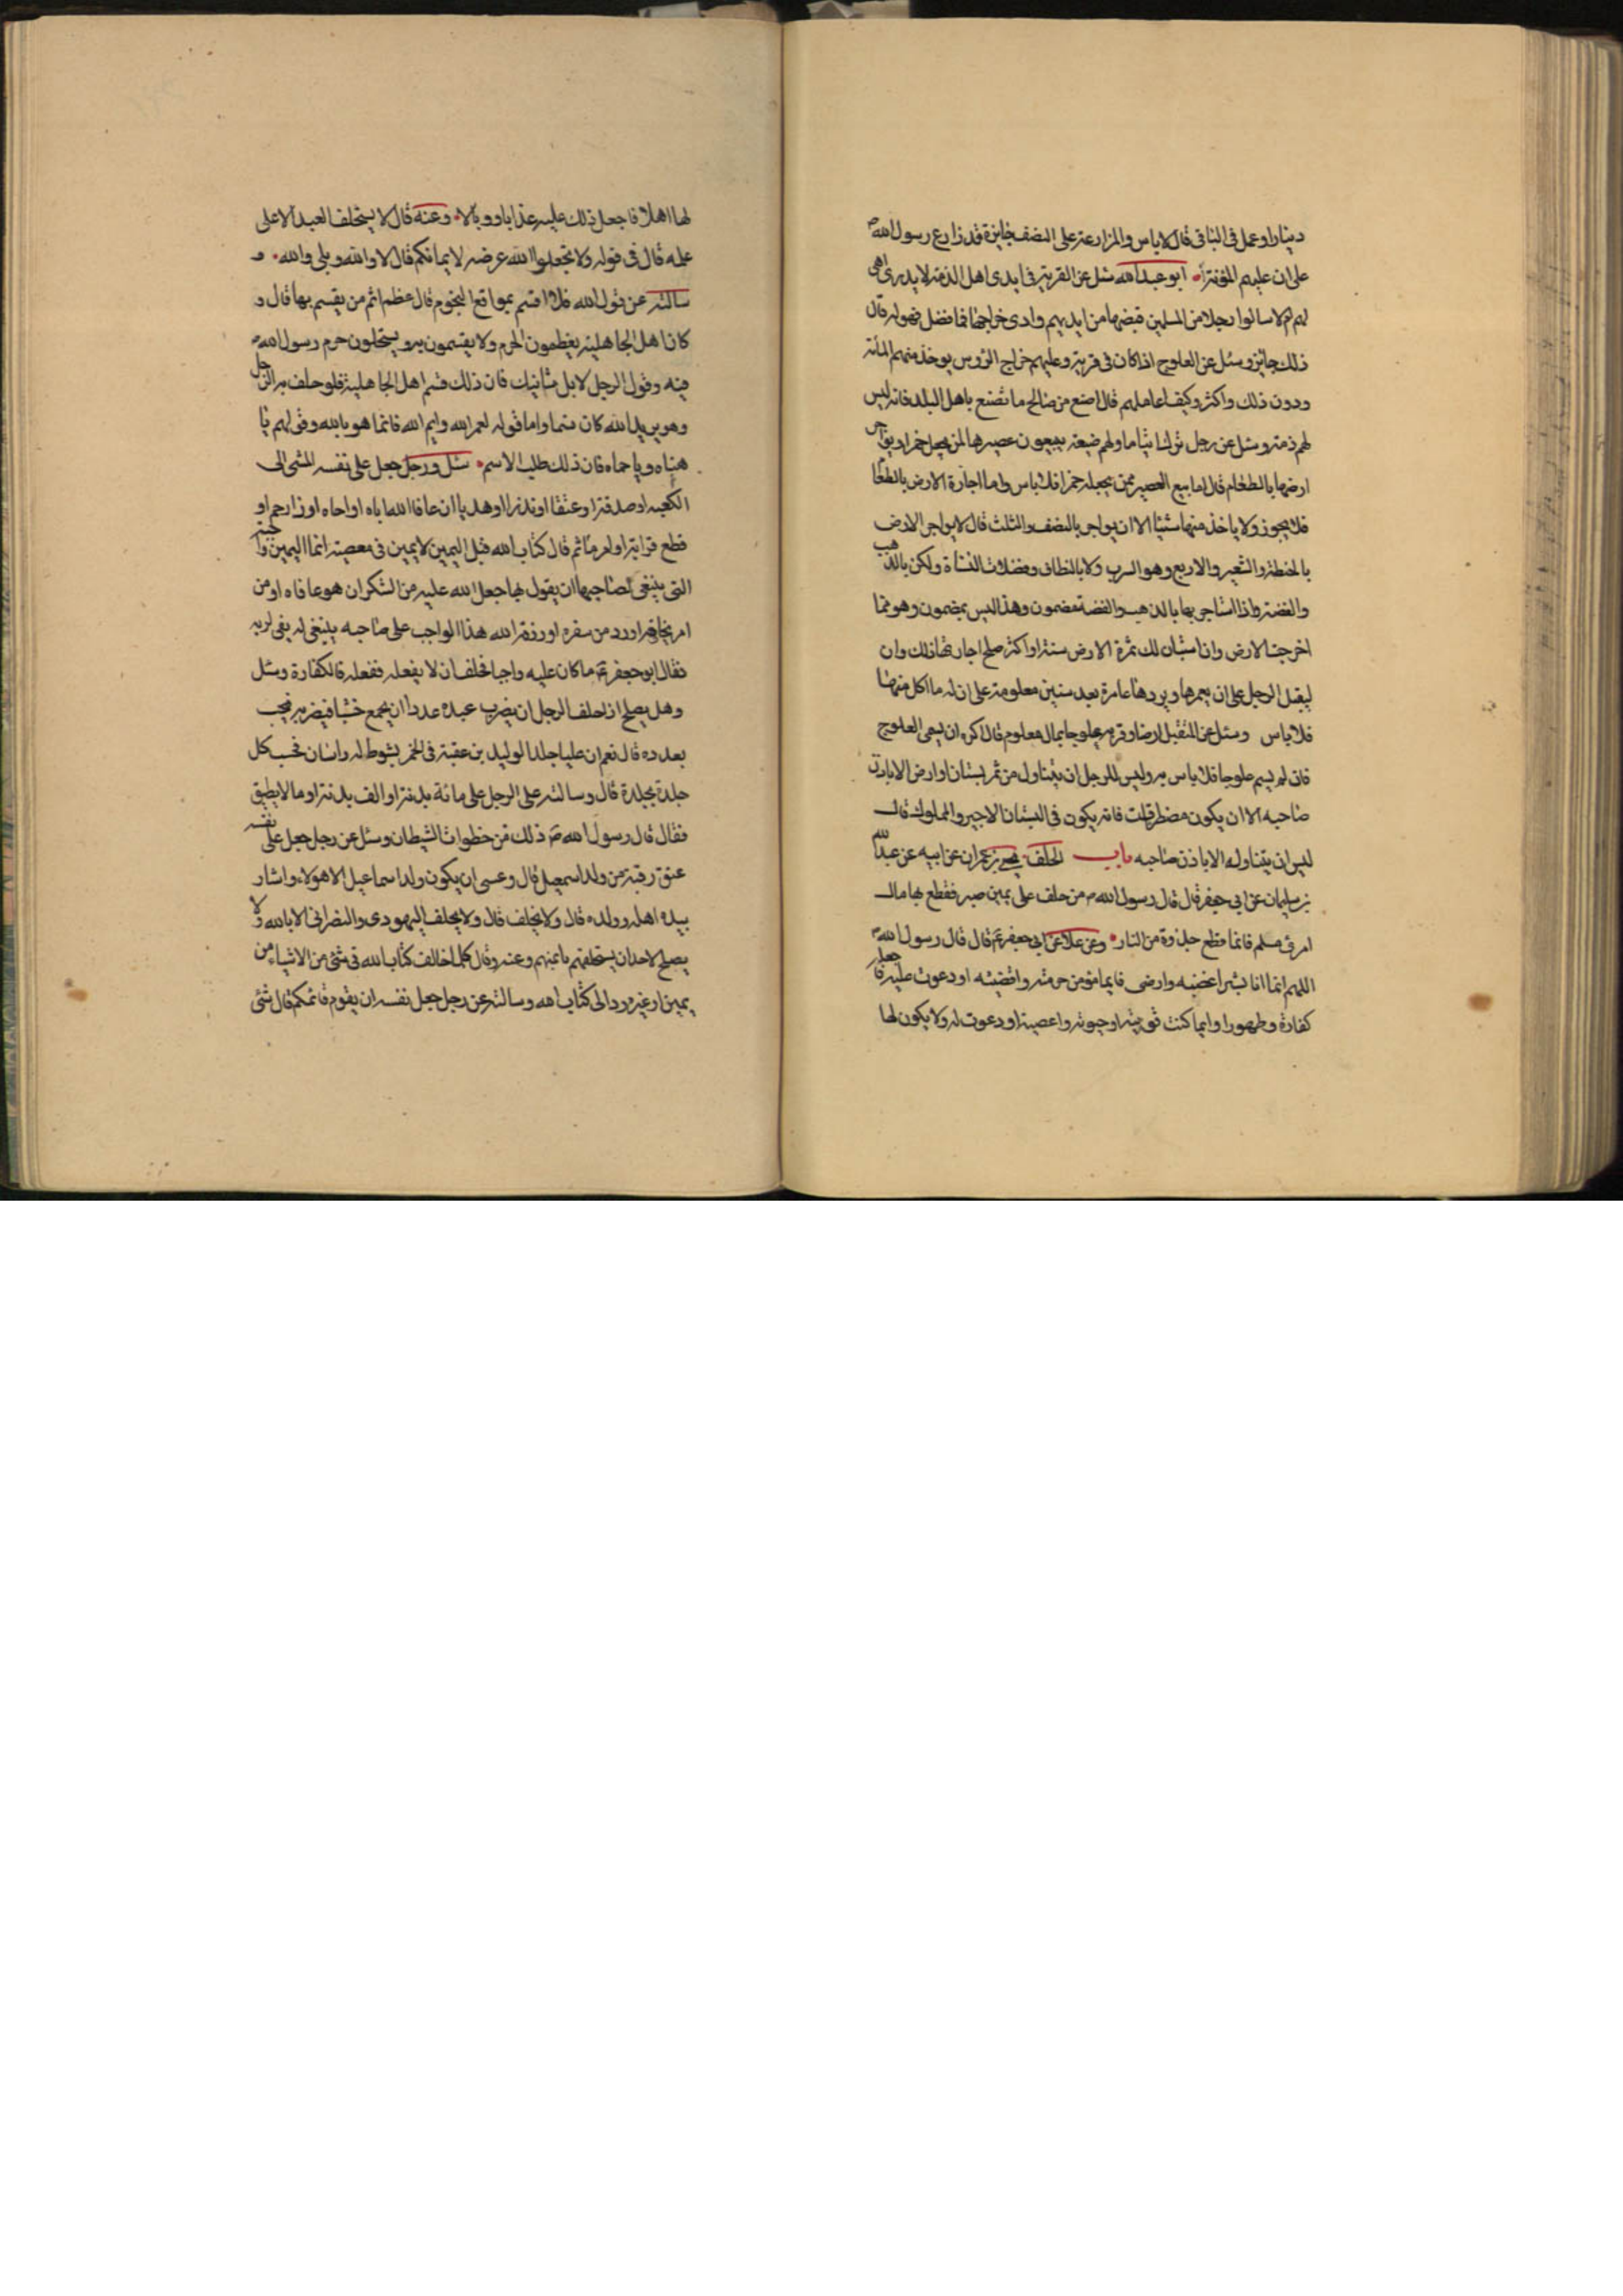 دينارا وعمل في الباقي قال لا باس والمزارعة على النصف جايزة قد زارع رسول الله ص
على ان عليهم المؤنة ابو عبد الله سئل عن القرية في ايدى اهل الذمة لا يدرى اهى
لهم ام لا سالوا رجلا من المسلمين قبضها من ايديهم وادى خراجها فما فضل فهو له قال
ذلك جايز وسئل عن العلوج اذا كان في قرية وعليهم خراج الرؤس يوخذ منهم المائة
ودون ذلك واكثر وكيف اعاملهم قال اصنع من صالح ما تصنع باهل البلد فانه ليس
لهم ذمة وسئل عن رجل ولهم ضيعة يبيعون عصيرها لمن يجعل خمرا ويواجر
ارضها بالطعام قال اما بيع العصير ممن يجعله خمرا فلا باس واما اجارة الارض بالطعام
فلا يجوز ولا ياخذ منها شيئا الا ان يواجر بالنصف والثلث قال لا يواجر الارض
بالحنطة والشعير والاربع وهو السرب ولا بالنطاف وفضلات ولكن بالذهب
والفضة واذا استاجر بها بالذهب والفضة مضمون وهذا ليس بمضمون وهو مما
اخرجت الارض وان استبان لك ثمرة الارض سنة او اكثر صلح اجارتها ذلك وان
ليقبل الرجل على ان يعمرها ويردها عامرة بعد سنين معلومة على ان له ما اكل منها
فلا باس وسئل عن المتقبل ارضا وقرية علوجا بمال معلوم قال اكره ان يسمى العلوج
فان لم يسم علوجا فلا باس به وليس للرجل ان يتناول من ثمر بستان او ارض الا باذن
صاحبه الا ان يكون مضطر قلت فانه يكون في البستان الاجير والمملوك قال
ليس ان يتناوله الا باذن صاحبه باب الحلف يحيى بن عمران عن ابيه عن عبد الله
بن سليمان عن ابي جعفر قال قال رسول الله ص من حلف على يمين صبر فقطع بها مال
امرئ مسلم فانما قطع جذوة من النار وعن علا عن ابي جعفر ع قال قال رسول الله ص
اللهم انما انا بشر اغضب وارضى فايما مؤمن حرمته واقضيته او دعوت عليه فاجعله
كفارة وطهورا وايما كنت او حبوته واعصيته او دعوت له ولا يكون لها
لها اهلا فاجعل ذلك عليه عذابا ووبالا وعنه قال لا يستحلف العبد الا على
علمه قال في قوله ولا تجعلوا الله عرضة لايمانكم قال لا والله وبلى والله و
سالته عن قول الله فلا اقسم بمواقع النجوم قال عظم اثم من يقسم بها قال و
كان اهل الجاهلية يعظمون الحرم ولا يقسمون به ويستحلون حرم رسول الله ص
فيه وقول الرجل لا بل شانيك فان ذلك قسم اهل الجاهلية فلو حلف به الرجل
وهو يريد الله كان قسما واما قوله لعمر الله وايم الله فانما هو بالله وقولهم يا
هناه ويا حماه فان ذلك طلب الاسم سئل ورجل جعل على نفسه المشى الى
الكعبة او صدقة او عتقا او نذرا او هديا ان عافا الله اباه او اخاه او ذا رحم او
قطع قرابة او امر ماثم قال كتاب الله قبل اليمين لا يمين في معصية انما اليمين الواجبة
التى ينبغى لصاحبها ان يقول بها جعل الله عليه من الشكر ان هو عافاه او من
امر يخافه او رد من سفره او رزقه الله هذا الواجب على صاحبه ينبغى له يفى لربه
فقال ابو جعفر ع ما كان عليه واجبا فحلف ان لا يفعله ففعله فالكفارة وسئل
وهل يصلح اذا حلف الرجل ان يضرب عبده عددا ان يجمع خشبا فيضربه فيحسب
بعدده قال نعم ان عليا جلد الوليد بن عقبة في الخمر بسوط له راسان فحسب كل
جلدة بجلدة قال وسالته على الرجل على مائة بدنة او الف بدنة او ما لا يطيق
فقال قال رسول الله ص ذلك من خطوات الشيطان وسئل عن رجل جعل على نفسه
عتق رقبة من ولد اسمعيل قال وعسى ان يكون ولد اسماعيل الا هولاء واشار
بيده اهله وولده قال ولا يحلف قال ولا يحلف اليهودى والنصرانى الا بالله ولا
يصلح لاحد ان يستحلفهم بالهتهم وعنه وقال كلما خالف كتاب الله في شئ من الاشياء من
يمين او غيره رد الى كتاب الله وسالته عن رجل جعل نفسه ان يقوم قال شئ